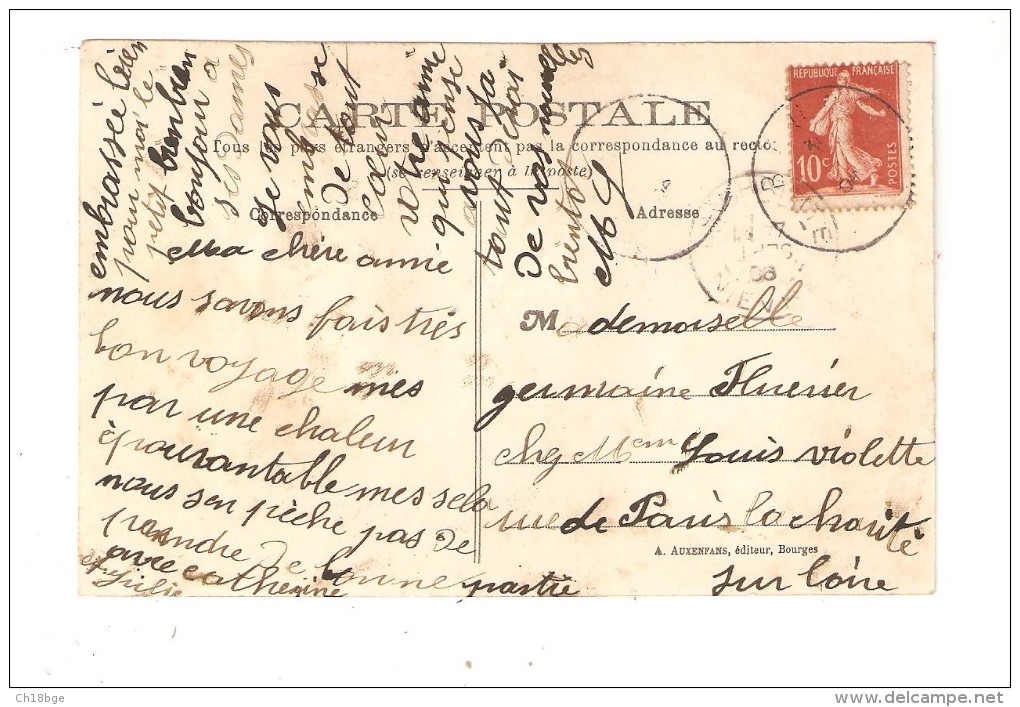 CARTE POSTALE
Tous les pays étrangers n'acceptent pas la correspondance au recto
(se renseigner à la poste)
Correspondance
Adresse
RÉPUBLIQUE FRANÇAISE
10c
POSTES
Ma chère amie
nous savons fais très
bon voyage mes
par une chaleur
épouvantable mes sela
nous sen pèche pas de
prendre de bonne partie
avec catherine
et Julie
embrassée
pour moi le
petit
bonjour a
ses dames
Je vous
embrasse
De tout
cœur
votre amie
qui pense
avoir
tant
De vos nouvelles
bientot
M G
Mademoiselle
germaine
chez Mem Louis violette
rue de Paris la charité
sur loire
A. AUXENFANS, éditeur, Bourges
08
Ch18bge
www.delcampe.net